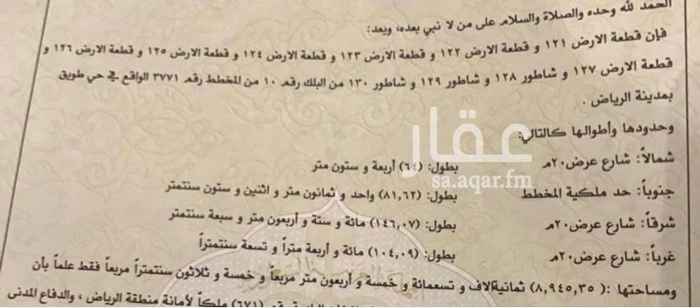 الحمد لله وحده والصلاة والسلام على من لا نبي بعده، وبعد:
فإن قطعة الارض ١٢١ و قطعة الارض ١٢٢ و قطعة الارض ١٢٣ و قطعة الارض ١٢٤ و قطعة الارض ١٢٥ و قطعة الارض ١٢٦ و
قطعة الارض ١٢٧ و شاطور ١٢٨ و شاطور ١٢٩ و شاطور ١٣٠ من البلك رقم ١٠ من المخطط رقم ٣٧٧١ الواقع في حي طويق
بمدينة الرياض .
وحدودها وأطوالها كالتالي:
شمالاً: شارع عرض ٢٠م بطول: (٦٤) أربعة و ستون متر
جنوباً: حد ملكية المخطط بطول: (٨١,٦٢) واحد و ثمانون متر و اثنين و ستون سنتمتر
شرقاً: شارع عرض ٢٠م بطول: (١٤٦,٠٧) مائة و ستة و أربعون متر و سبعة سنتمتر
غرباً: شارع عرض ٢٠م بطول: (١٠٤,٠٩) مائة و أربعة متراً و تسعة سنتمتراً
ومساحتها :( ٨,٩٤٥,٣٥) ثمانية الاف و تسعمائة و خمسة و أربعون متر مربعاً و خمسة و ثلاثون سنتمتراً مربعاً فقط علماً بأن
(٦٧١) ملكاً لأمانة منطقة الرياض ، والدفاع المدني
عقار
sa.aqar.fm